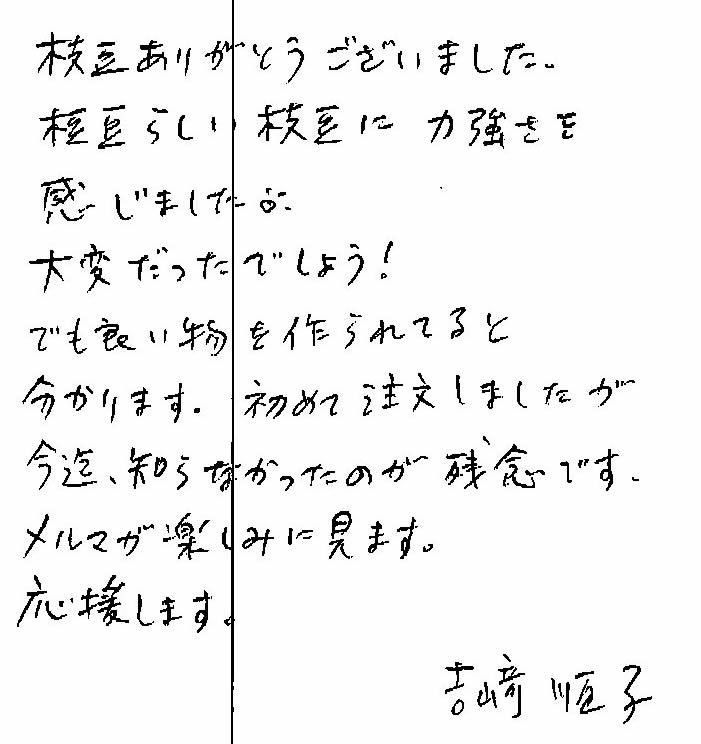 枝豆ありがとうございました。
枝豆らしい枝豆に力強さを
感じましたが、
大変だったでしょう!
でも良い物を作られてると
分かります。初めて注文しましたが
今迄、知らなかったのが残念です、
メルマガ楽しみに見ます。
応援します。
吉﨑 順子